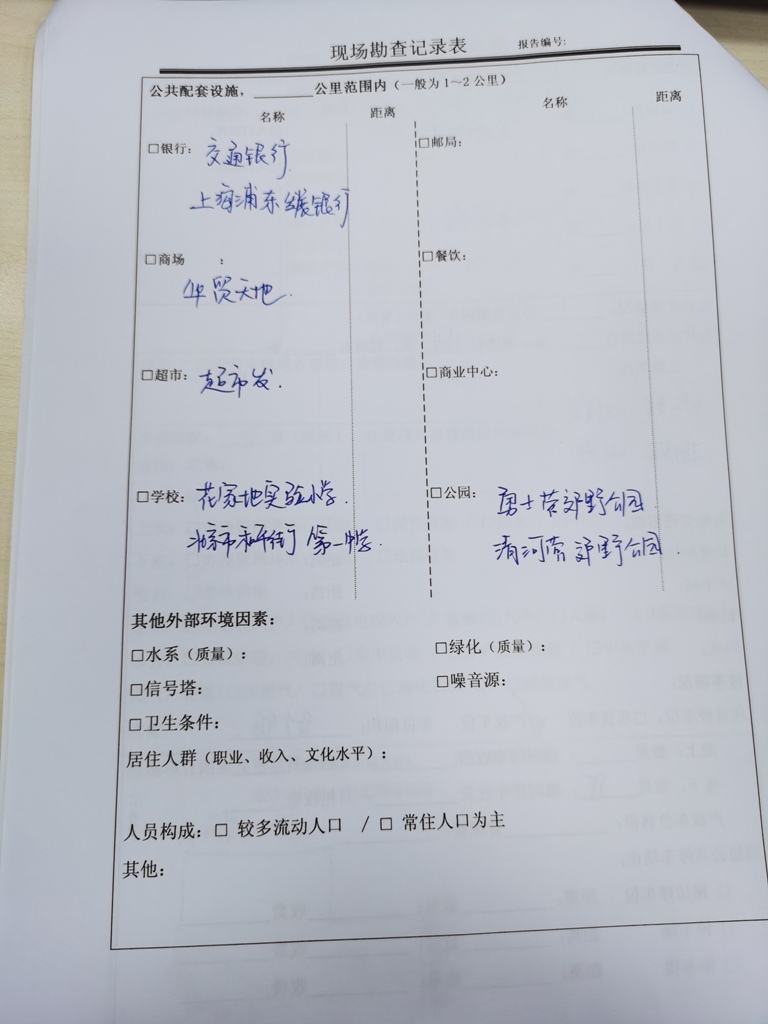 现场勘查记录表 报告编号:
公共配套设施，______公里范围内（一般为1～2公里）
名称 距离 名称 距离
□银行： 交通银行 □邮局：
上海浦东发展银行
□商场 ： □餐饮：
华贸天地.
□超市： 超市发. □商业中心：
□学校： 花家地实验小学. □公园： 勇士营郊野公园
北京市和平街第一中学. 清河营郊野公园.
其他外部环境因素：
□水系（质量）： □绿化（质量）：
□信号塔： □噪音源：
□卫生条件：
居住人群（职业、收入、文化水平）：
人员构成：□ 较多流动人口 / □ 常住人口为主
其他：